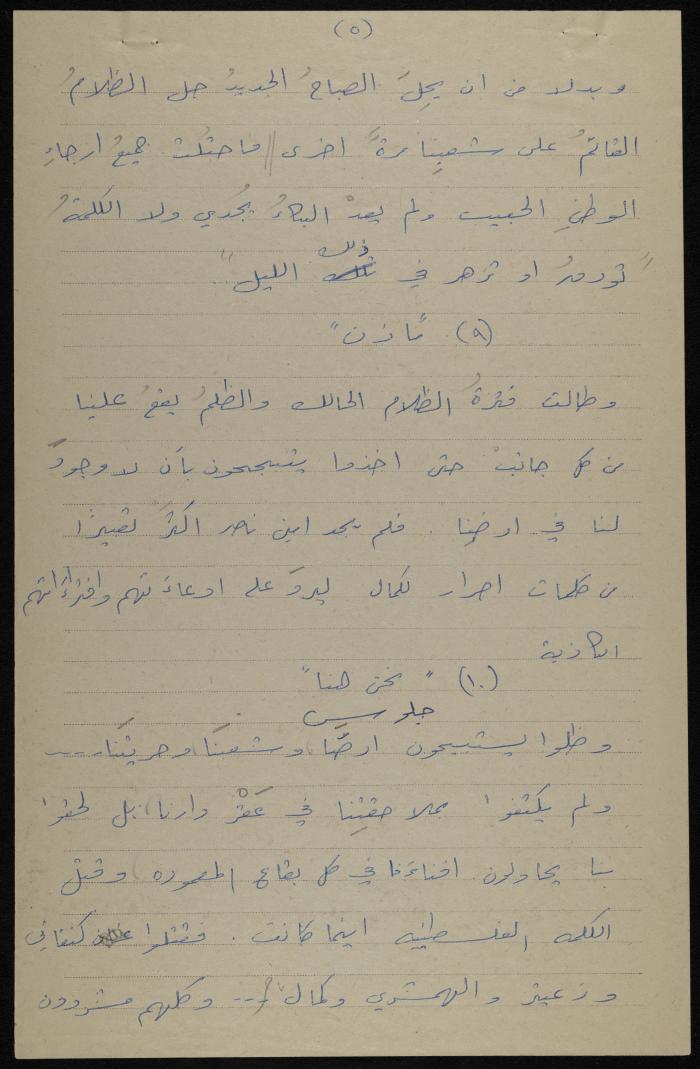 (٥)
وبدلا من ان يحِلَ الصباحُ الجديدُ حل الظلامُ
القاتمُ على شعبِنا مرةً اخرى // فاحتلت جميعُ ارجاءِ
الوطنِ الحبيب ولم يعدْ البكاءُ يُجدي ولا الكلمةُ
"تورقُ او تزهر في ذلك الليل"
(٩) "مآذن"
وطالت فترةُ الظلام الحالك والظلمُ يقعُ علينا
من كل جانبْ حتى اخذوا يتبجحون بأن لا وجودَ
لنا في ارضِنا. فلم يجد ابن ناصر اكثرُ تعبيرًا
من كلمات احرار لكمال ليردَ على ادعاءَتهم وافتراءَاتهم
الكاذبة
(١٠) "نحن هنا"
جلوس
وظلوا يستبيحون ارضَنا وشعبَنا وحريتَنا ....
ولم يكتفوا بملاحقتِنا في عَقْرِ دارنا، بل لحقوا
بنا يحاولون افناءَنا في كل بقاع المعموره وقتل
الكلمه الفلسطينيه اينما كانت. فقتلوا كنفاني
وزعيتر والهمشري وكمال ... وكلهم مشردون